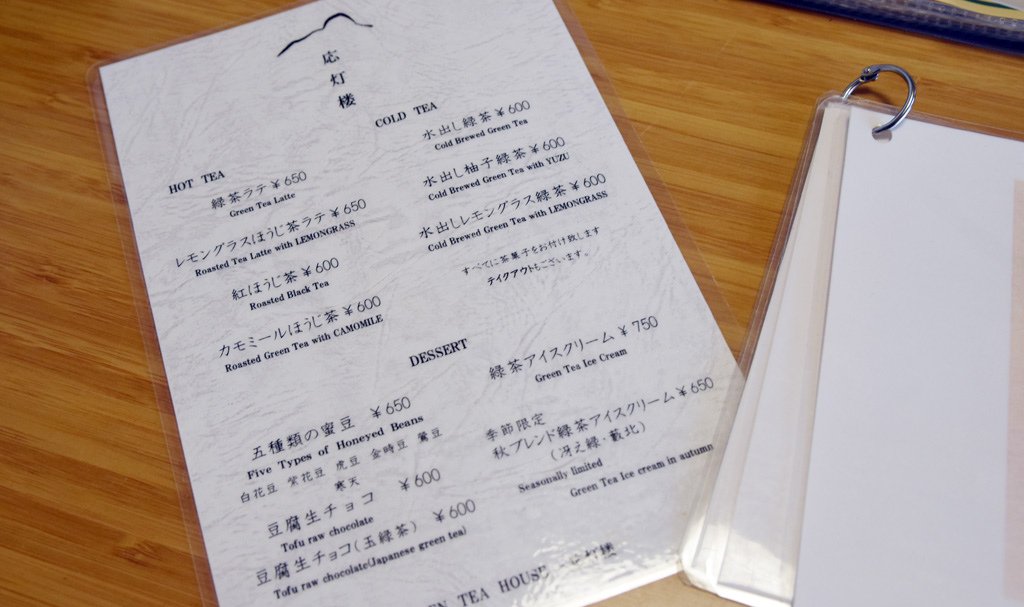 応灯楼
HOT TEA
緑茶ラテ ¥650
Green Tea Latte
レモングラスほうじ茶ラテ ¥650
Roasted Tea Latte with LEMONGRASS
紅ほうじ茶 ¥600
Roasted Black Tea
カモミールほうじ茶 ¥600
Roasted Green Tea with CAMOMILE
COLD TEA
水出し緑茶 ¥600
Cold Brewed Green Tea
水出し柚子緑茶 ¥600
Cold Brewed Green Tea with YUZU
水出しレモングラス緑茶 ¥600
Cold Brewed Green Tea with LEMONGRASS
すべてに茶菓子をお付け致します
テイクアウトもございます。
DESSERT
五種類の蜜豆 ¥650
Five Types of Honeyed Beans
白花豆 紫花豆 虎豆 金時豆 鶯豆
寒天
豆腐生チョコ ¥600
Tofu raw chocolate
豆腐生チョコ(玉緑茶) ¥600
Tofu raw chocolate(Japanese green tea)
緑茶アイスクリーム ¥750
Green Tea Ice Cream
季節限定
秋ブレンド緑茶アイスクリーム ¥650
(冴え緑・藪北)
Seasonally limited
Green Tea Ice cream in autumn
TEA HOUSE 応灯楼